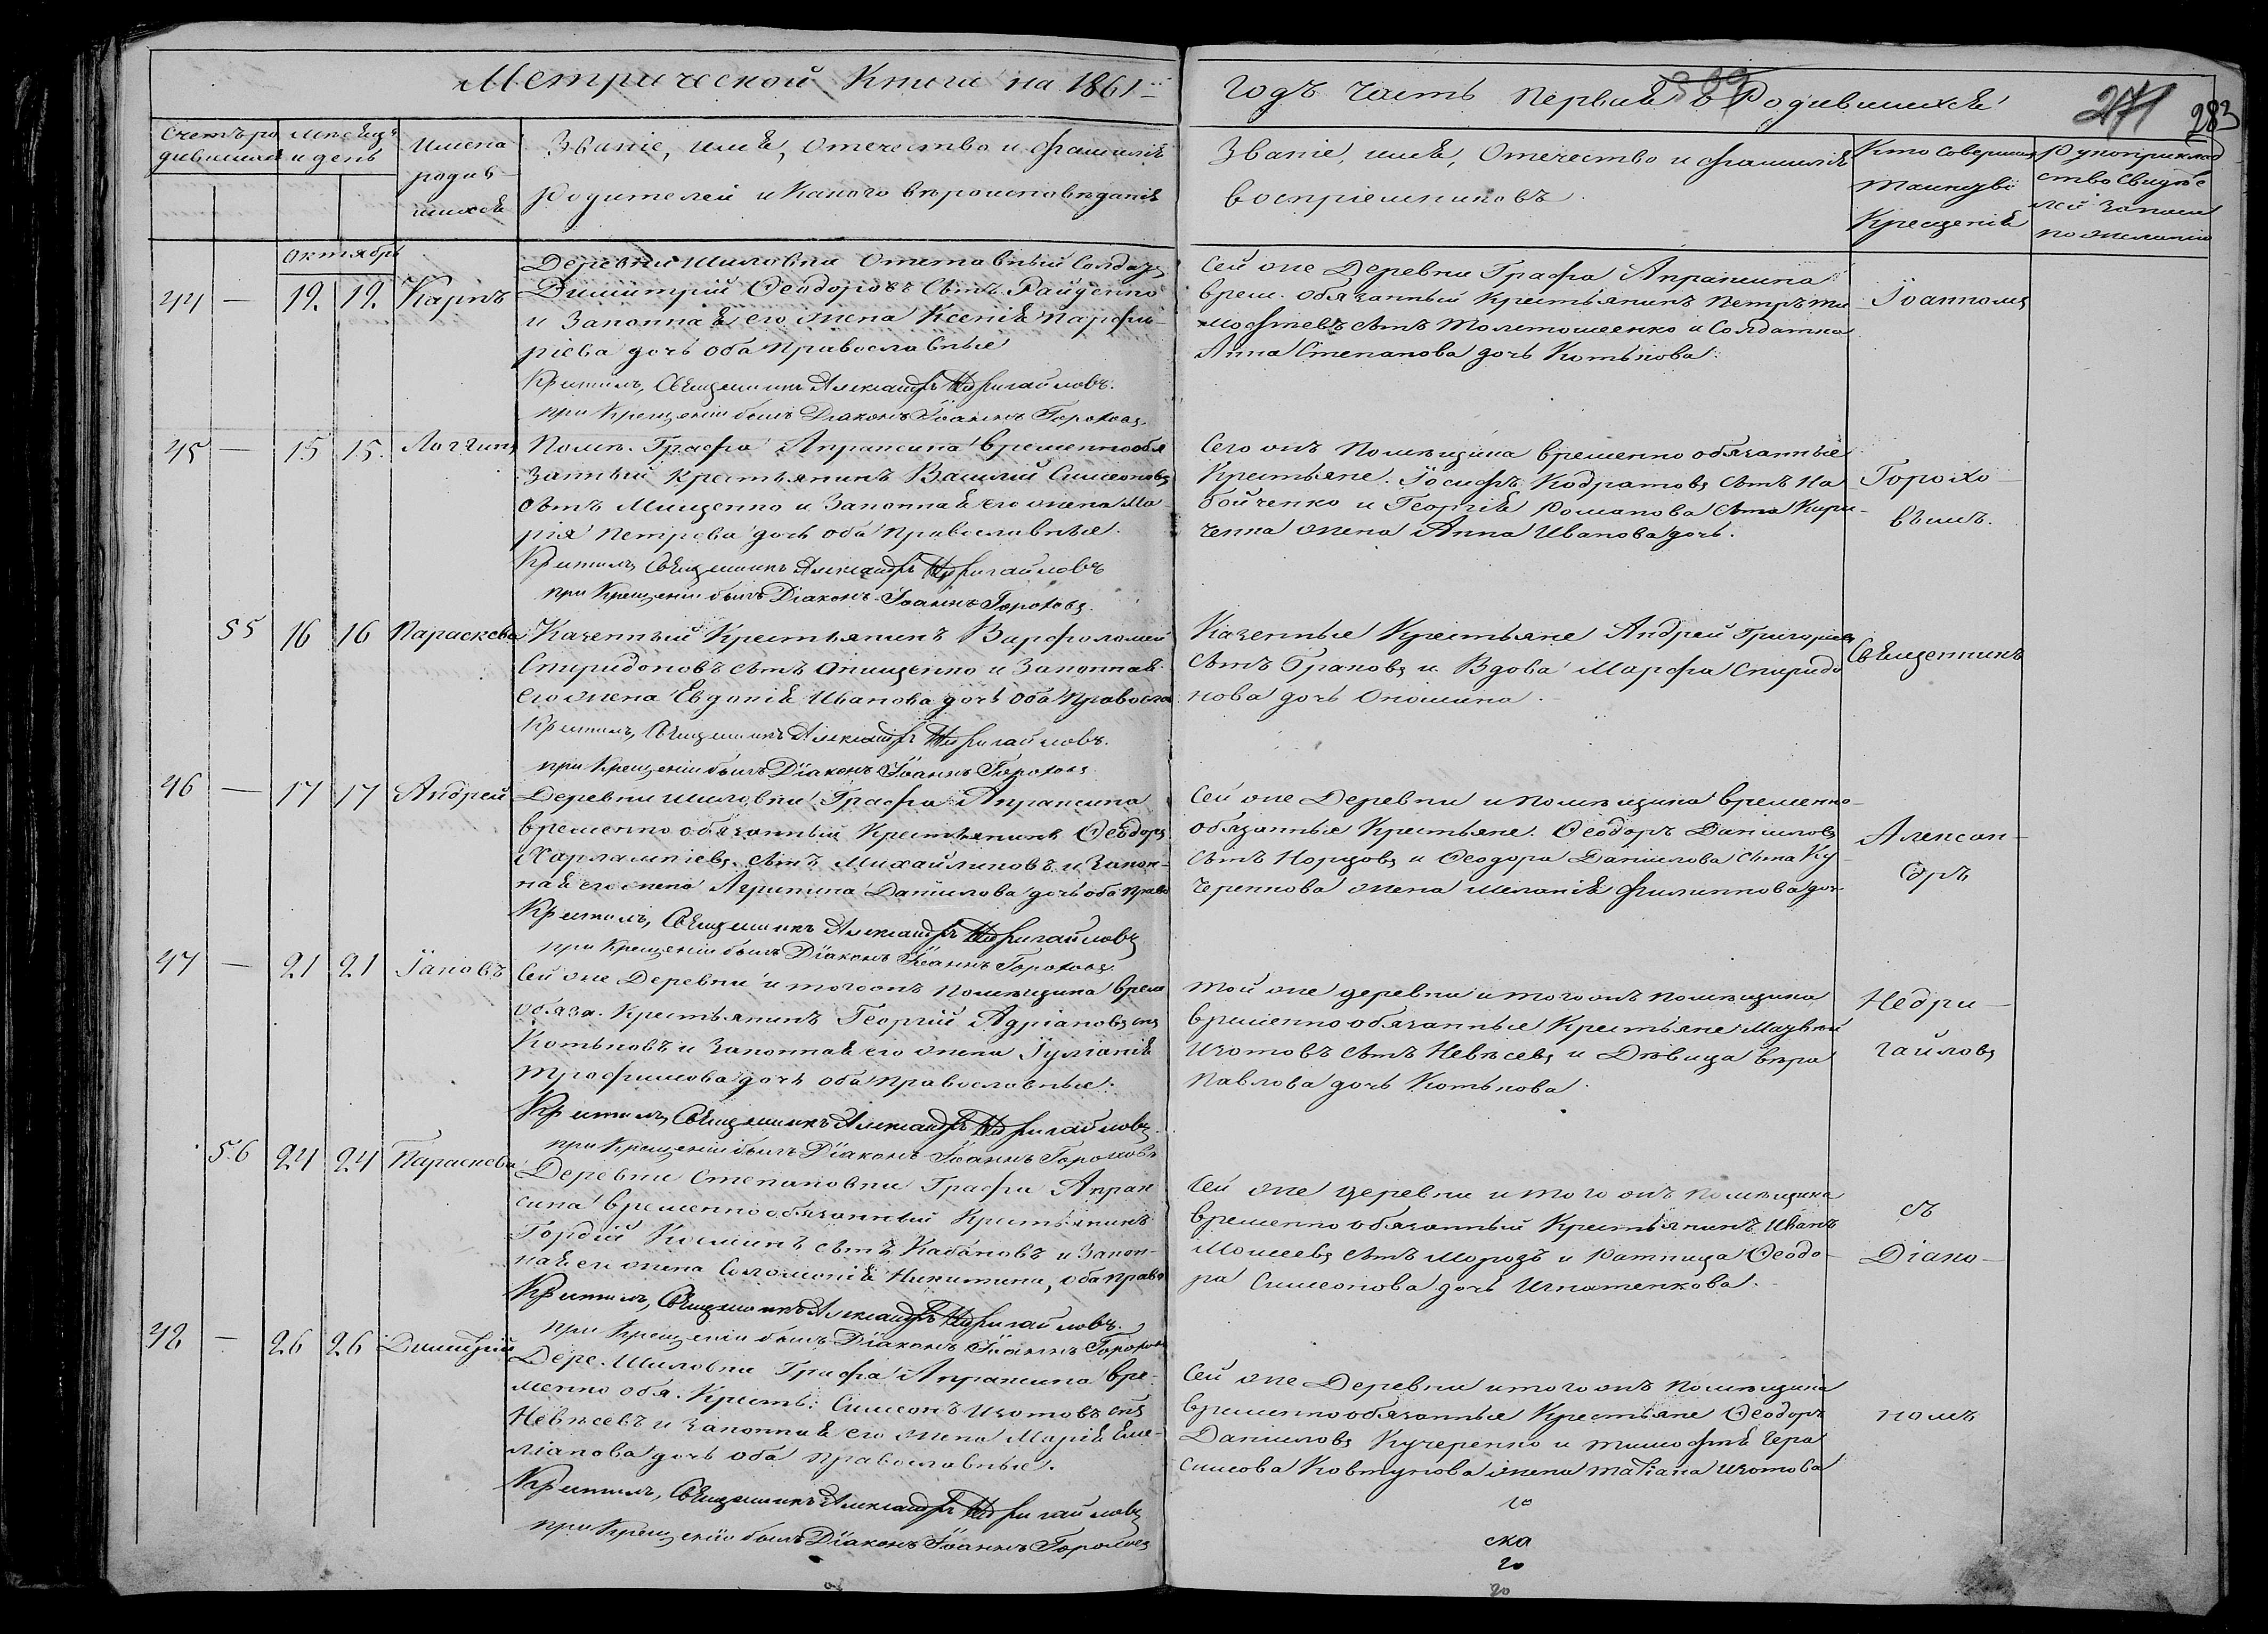 Метрической Книги на 1861й
годъ часть первая о Родившихся
271
283
Счетъ ро
дившихся
Мѣсяцъ
и день
Имена
родив-
шихся
Званіе, имя, Отечество и фамилія
Родителей и Какого вѣроисповѣданія
Званіе, имя, Отечество и фамилія
воспріемниковъ.
Кто Совершалъ
таинство
Крещенія
Рукоприклад
ство Свидѣте
лей записи
по желанію
Октябрь
44 — 12. 12. Карпъ
Деревни Шиловки Отставный Солдатъ
Димитрій Ѳеодоровъ Сынъ Райденко
и Законная его жена Ксенія Парфи-
ріева дочь оба Православные
Крестилъ, Священникъ Александръ Недригайловъ.
при Крещеніи былъ Діаконъ Іоаннъ Гороховъ.
Сей же Деревни Графа Апраксина
врем. обязанный Крестьянинъ Петръ Ти
мофѣевъ сынъ Толстошеенко и Солдатка
Анна Степанова дочь Котькова.
Іоанномъ
45 — 15 15. Логгинъ
Помѣ. Графа Апраксина временнообя
занный Крестьянинъ Василій Симеоновъ
сынъ Мищенко и Законная его жена Ма-
рія Петрова дочь оба православные.
Крестилъ Священникъ Александръ Недригайловъ
при Крещеніи былъ Діаконъ Іоаннъ Гороховъ.
Сего жъ Помѣщика временно обязанные
Крестьяне. Іосифъ Кодратовъ сынъ На
бойченко и Георгія Романова сына Кири-
ченка жена Анна Иванова дочь.
Горохо-
вымъ.
55 16 16 Параскева
Казенный Крестьянинъ Варфоломей
Спиридоновъ сынъ Онищенко и Законная
его жена Евдокія Иванова дочь оба Правосла
Крестилъ, Священникъ Александръ Недригайловъ.
при Крещеніи былъ Діаконъ Іоаннъ Гороховъ
Казенные Крестьяне Андрей Григорьевъ
сынъ Браковъ и Вдова Марфа Спиридо
нова дочь Оношина.
Священникъ
46 — 17 17 Андрей
Деревни Шиловки Графа Апраксина
временно обязанный Крестьянинъ Ѳеодоръ
Харлампіевъ сынъ Михайликовъ и Закон-
ная его жена Агрипина Данилова дочь оба право
Крестилъ, Священникъ Александръ Недригайловъ
при Крещеніи былъ Діаконъ Іоаннъ Гороховъ.
Сей же Деревни и помѣщика временно-
обязанные Крестьяне. Ѳеодоръ Даниловъ
сынъ Норцовъ и Ѳеодора Данилова сына Ку-
черенкова жена Меланія Филиппова доч.
Алексан-
дръ
47 — 21 21 Іаковъ
Сей же Деревни и тогожъ Помѣщика врем
обяза. Крестьянинъ Георгій Адріановъ снъ
Котьковъ и законная его жена Іуліанія
Трофимова дочь оба православные.
Крестилъ, Священникъ Александръ Недригайловъ.
при Крещеніи былъ Діаконъ Іоаннъ Гороховъ
Той же деревни и тогожъ помѣщика
временно обязанные Крестьяне Матвѣй
Изотовъ сынъ Невѣсевъ и Дѣвица Вѣра
Павлова дочь Котькова.
Недри-
гайловъ
56 24 24 Параскева
Деревни Степановки Графа Апрак
сина временно обязанный Крестьянинъ
Гордій Косминъ сынъ Кабановъ и Закон-
ная его жена Соломонія Никитина, оба право
Крестилъ, Священникъ Александръ Недригайловъ.
при Крещеніи былъ Діаконъ Іоаннъ Гороховъ
Сей же деревни и того жъ помѣщика
временно обязанный Крестьянинъ Иванъ
Моисеевъ сынъ Морозъ и Ратница Ѳеодо-
ра Симеонова дочь Игнатенкова.
съ
Діако-
48 — 26 26 Димитрій
Дере. Шиловки Графа Апраксина вре-
менно обя. Кресть. Симеонъ Изотовъ снъ
Невѣсевъ и законная его жена Марія Еме-
ліанова дочь оба Православные.
Крестилъ, Священникъ Александръ Недригайловъ
при Крещеніи былъ Діаконъ Іоаннъ Гороховъ
Сей же Деревни и того жъ помѣщика
временно обязанные Крестьяне Ѳеодоръ
Даниловъ Кучеренко и Тимофея Гера
симова Ковтунова жена Татіана Изотова
номъ
го
ска
го
го